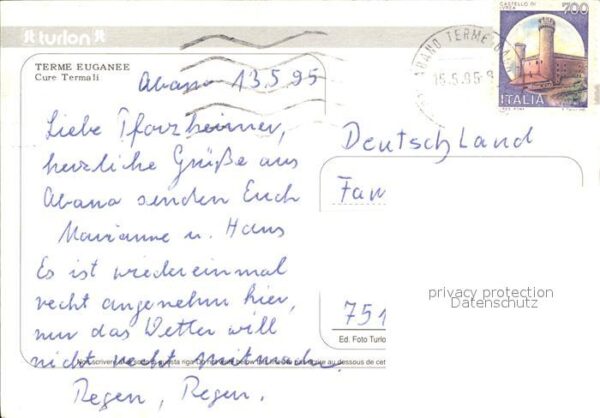 turlon
TERME EUGANEE
Cure Termali
Abano 13.5.95
Liebe Pforzheimer,
herzliche Grüße aus
Abano senden Euch
Marianne u. Hans
Es ist wiedereinmal
recht angenehm hier,
nur das Wetter will
nicht recht mitmachen.
Regen, Regen.
CASTELLO DI
IVREA
700
ITALIA
ABANO TERME
15.5.95
Deutschland
Fam
751
Ed. Foto Turlo
privacy protection
Datenschutz